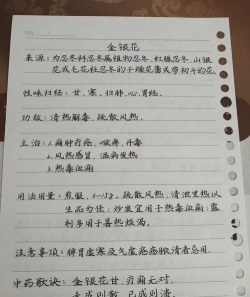 金银花
来源：为忍冬科忍冬属植物忍冬、红腺忍冬、山银
花或毛花柱忍冬的干燥花蕾或带初开的花。
性味归经：甘、寒。归肺、心、胃经。
功效：清热解毒、疏散风热。
主治：1.痈肿疔疮、喉痹、丹毒
2.风热感冒、温病发热
3.热毒血痢
用法用量：煎服，6~15g。疏散风热、清泄里热以
生品为佳；炒炭宜用于热毒血痢；露
剂多用于暑热烦渴。
注意事项：脾胃虚寒及气虚疮疡脓清者忌用。
中药歌诀：金银花甘，疗痈无对，
未成则散，已成则溃。